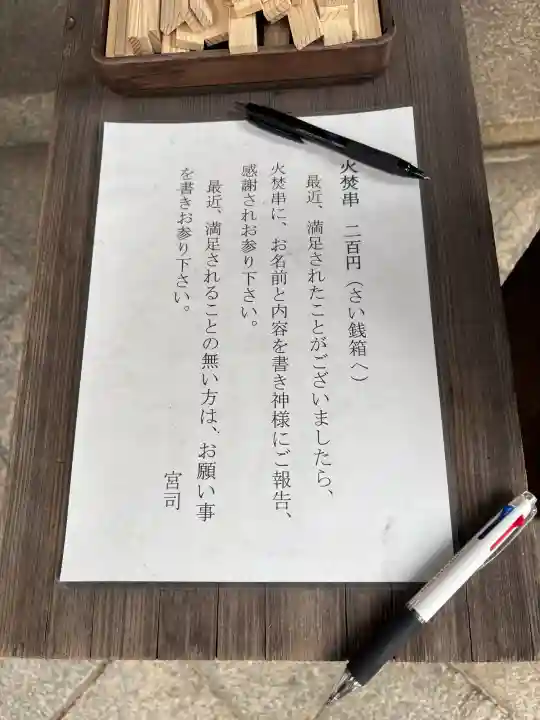 火焚串　二百円（さい銭箱へ）
最近、満足されたことがございましたら、
火焚串に、お名前と内容を書き神様にご報告、
感謝されお参り下さい。
最近、満足されることの無い方は、お願い事
を書きお参り下さい。
宮司